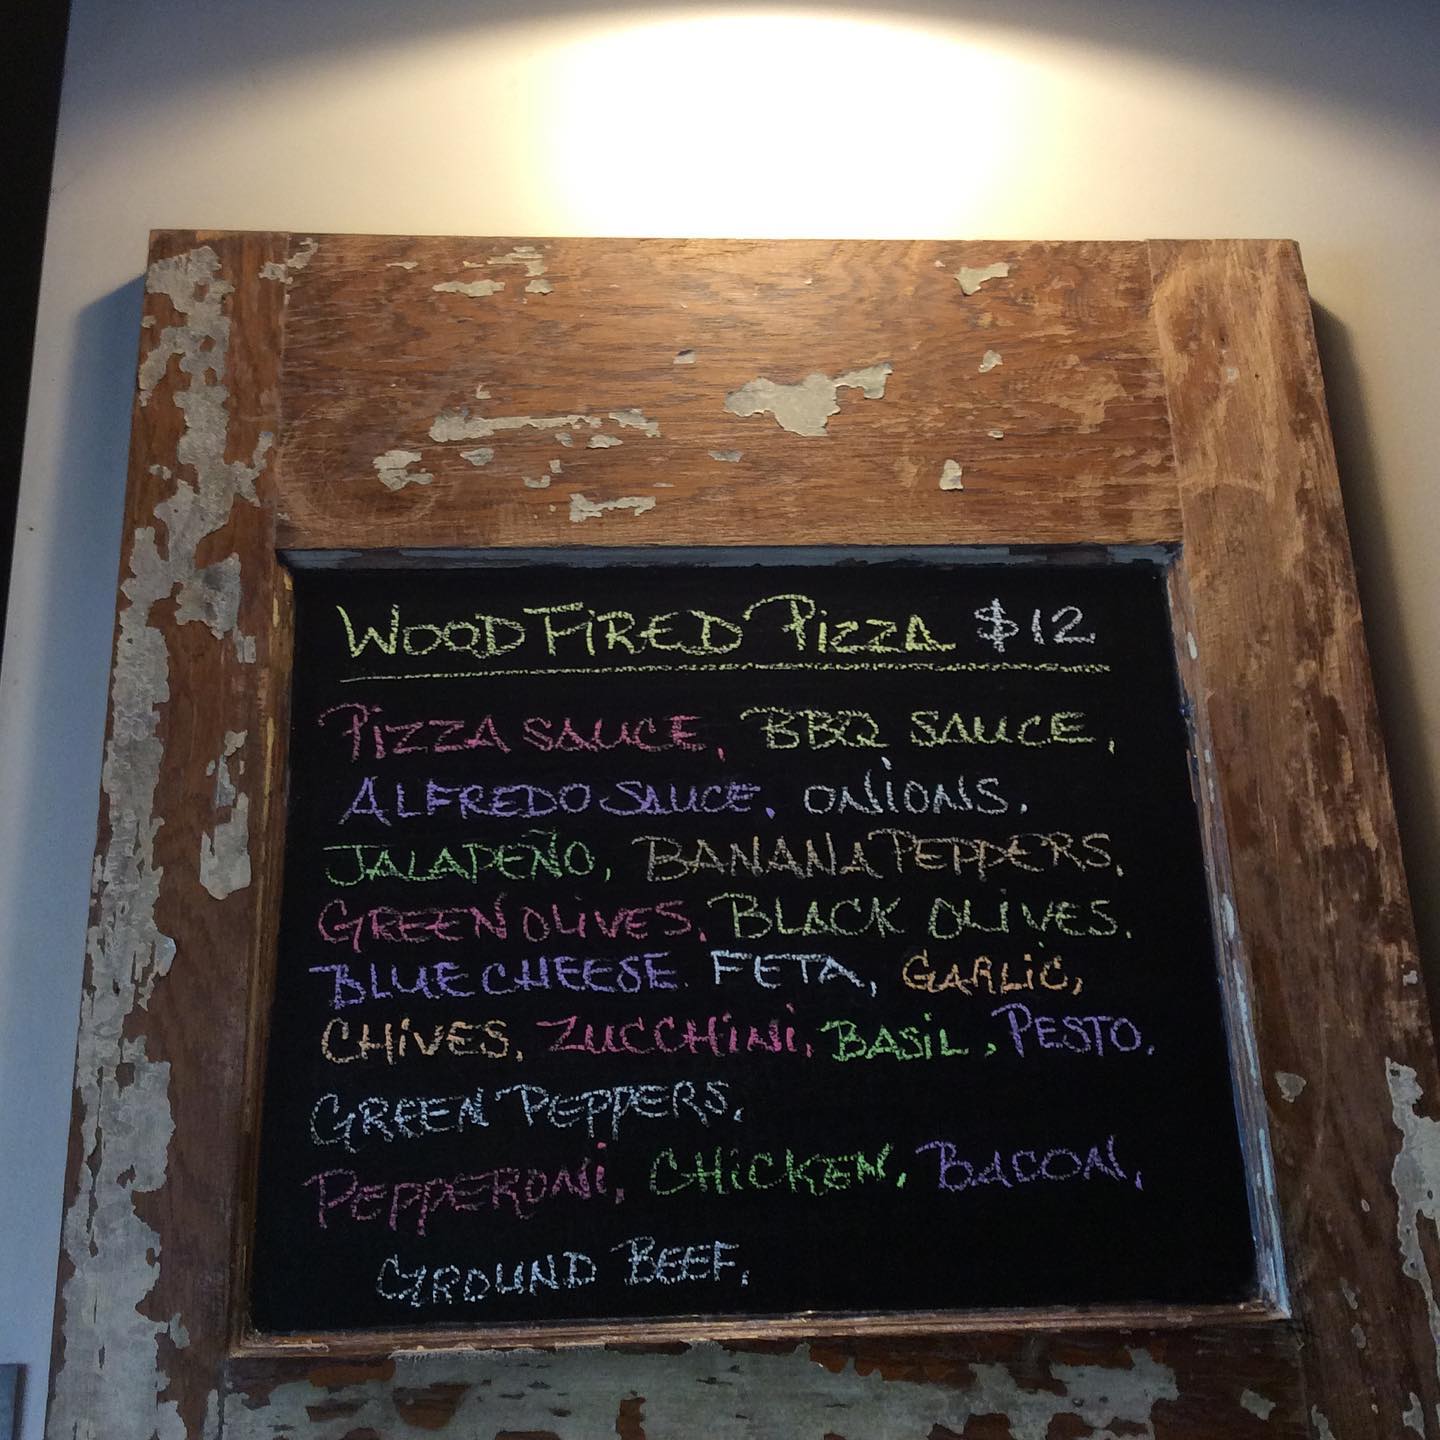 WOOD FIRED PIZZA $12
PIZZA SAUCE, BBQ SAUCE,
ALFREDO SAUCE, ONIONS,
JALAPEÑO, BANANA PEPPERS,
GREEN OLIVES, BLACK OLIVES,
BLUE CHEESE. FETA, GARLIC,
CHIVES, ZUCCHINI, BASIL, PESTO,
GREEN PEPPERS,
PEPPERONI, CHICKEN, BACON,
GROUND BEEF,